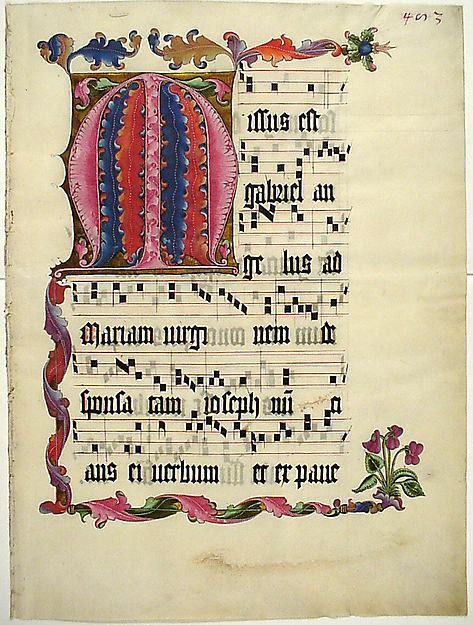 Missus est
gabriel an
ge lus ad
Mariam uirgi nem de
sponsa tam ioseph nū ci
ans ei uerbum et ex paue